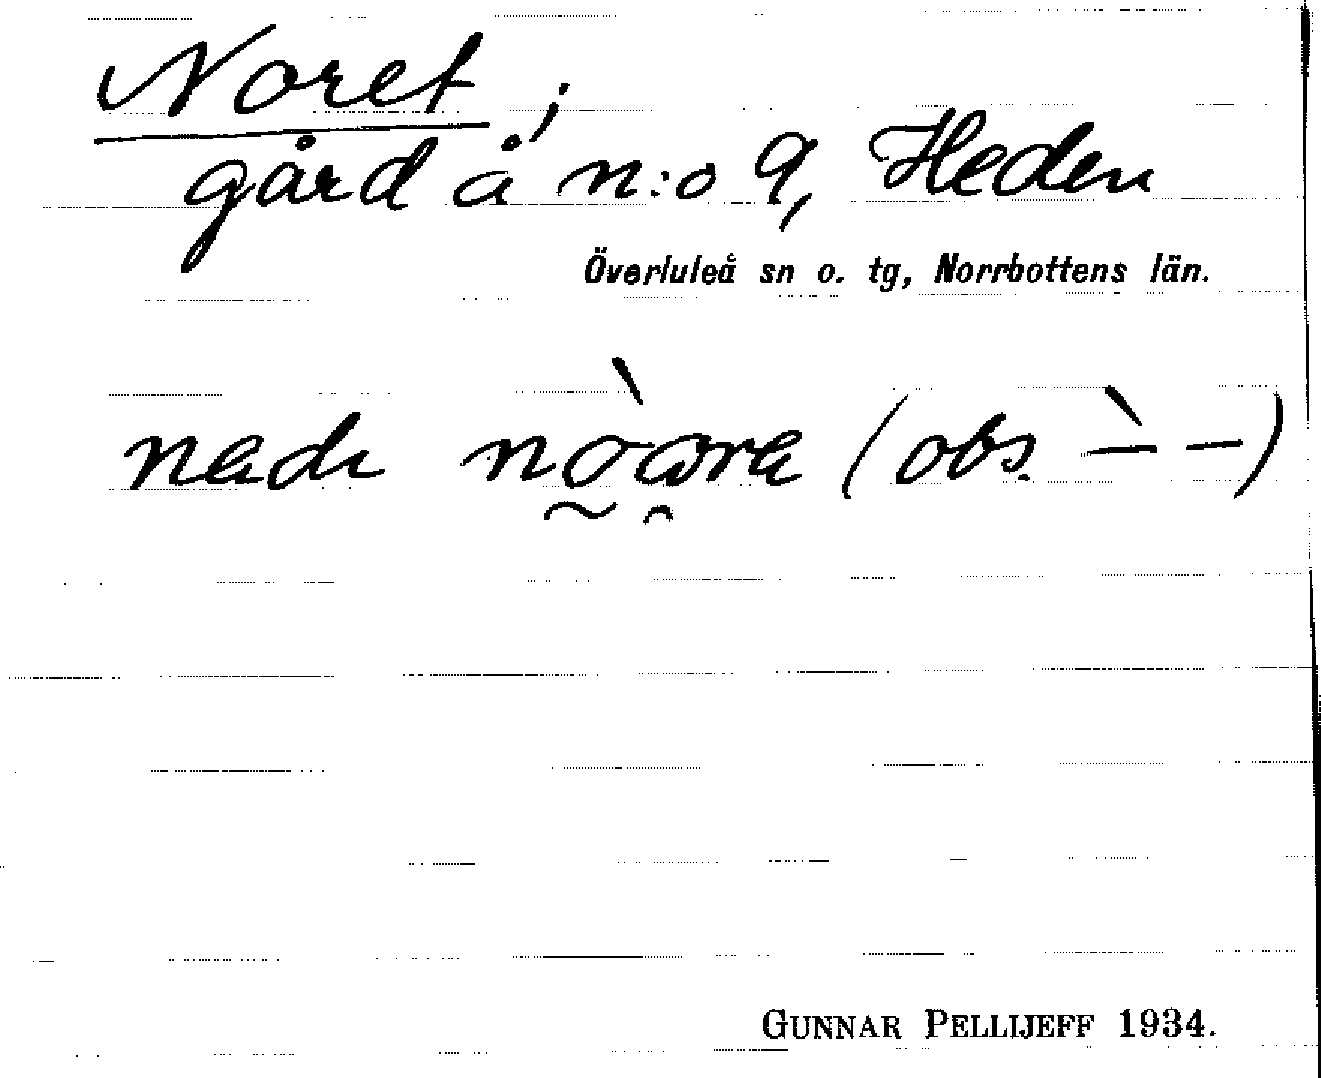 Noret,
gård å n:o 9, Heden
Överluleå sn o. tg, Norrbottens län.
nedi (obs. `– –)
GUNNAR PELLIJEFF 1934.